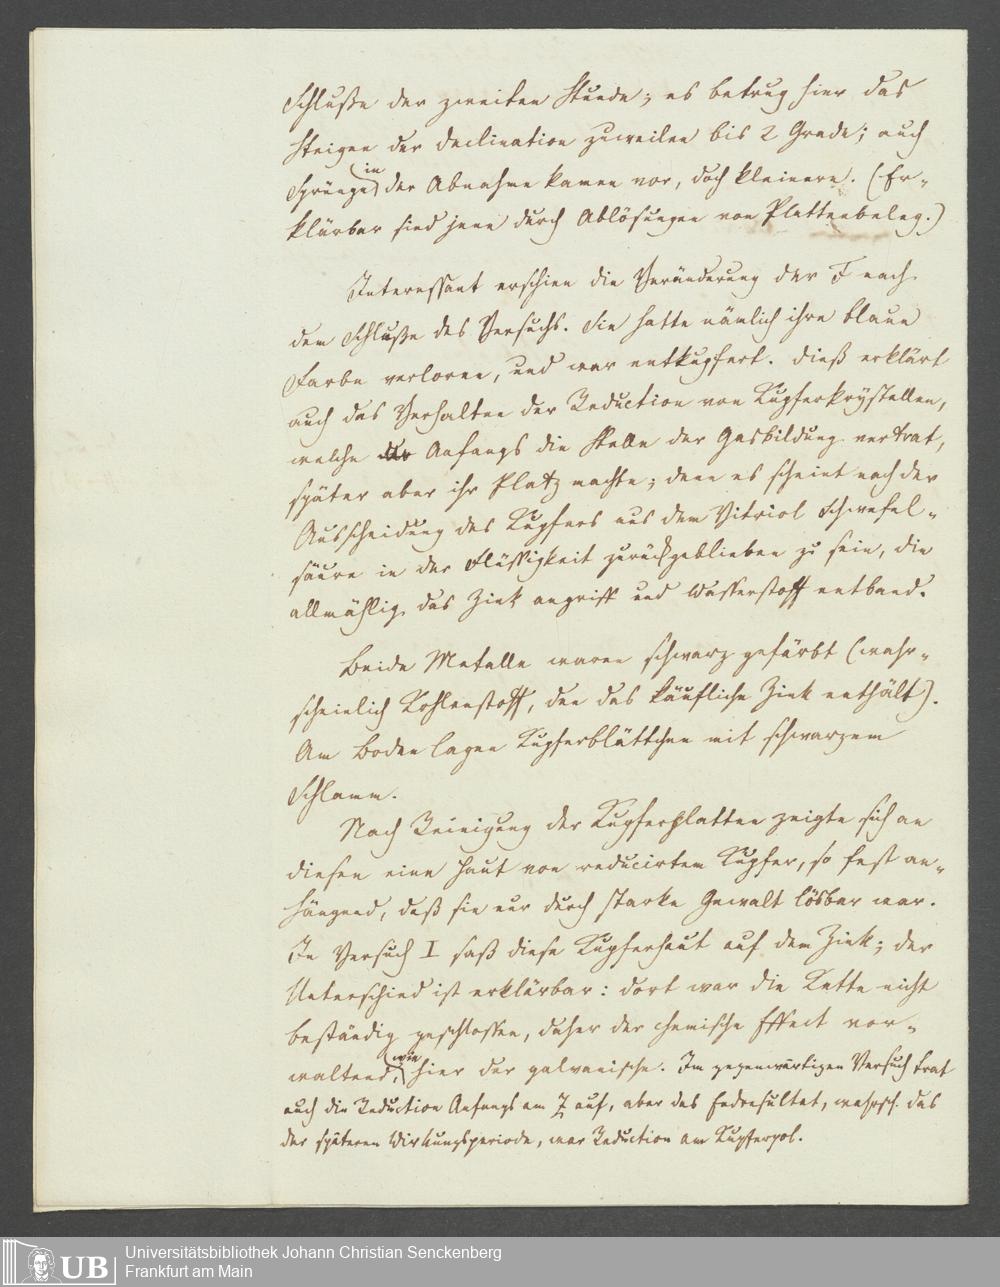 Schluße der zweiten Stunde; es betrug hier das
Steigen der Declination zuweilen bis 2 Grade; auch
Sprünge in der Abnahme kamen vor, doch kleinere. (Er-
klärbar sind jene durch Ablösungen von Plattenbeleg.)
Interessant erschien die Veränderung der F nach
dem Schluße des Versuchs. Sie hatte nämlich ihre blaue
Farbe verloren, und war entkupfert. Dieß erklärt
auch das Verhalten der Reduction von Kupferkrystallen,
welche Anfangs die Stelle der Gasbildung vertrat,
später aber ihr Platz machte; denn es scheint nach der
Ausscheidung des Kupfers aus dem Vitriol Schwefel-
säure in der Flüssigkeit zurückgeblieben zu sein, die
allmählig das Zink angriff und Wasserstoff entband.
Beide Metalle waren schwarz gefärbt (wahr-
scheinlich Kohlenstoff, den das käufliche Zink enthält).
Am Boden lagen Kupferblättchen mit schwarzem
Schlamm.
Nach Reinigung der Kupferplatten zeigte sich an
diesen eine Haut von reducirtem Kupfer, so fest an-
hängend, daß sie nur durch starke Gewalt lösbar war.
In Versuch I saß diese Kupferhaut auf dem Zink; der
Unterschied ist erklärbar: dort war die Kette nicht
beständig geschlossen, daher der chemische Effect vor-
waltend, wie hier der galvanische. Im gegenwärtigen Versuch trat
auch die Reduction Anfangs am Z auf, aber das Endresultat, wahrsch. das
der späteren Wirkungsperiode, war Reduction am Kupferpol.
UB
Universitätsbibliothek Johann Christian Senckenberg
Frankfurt am Main